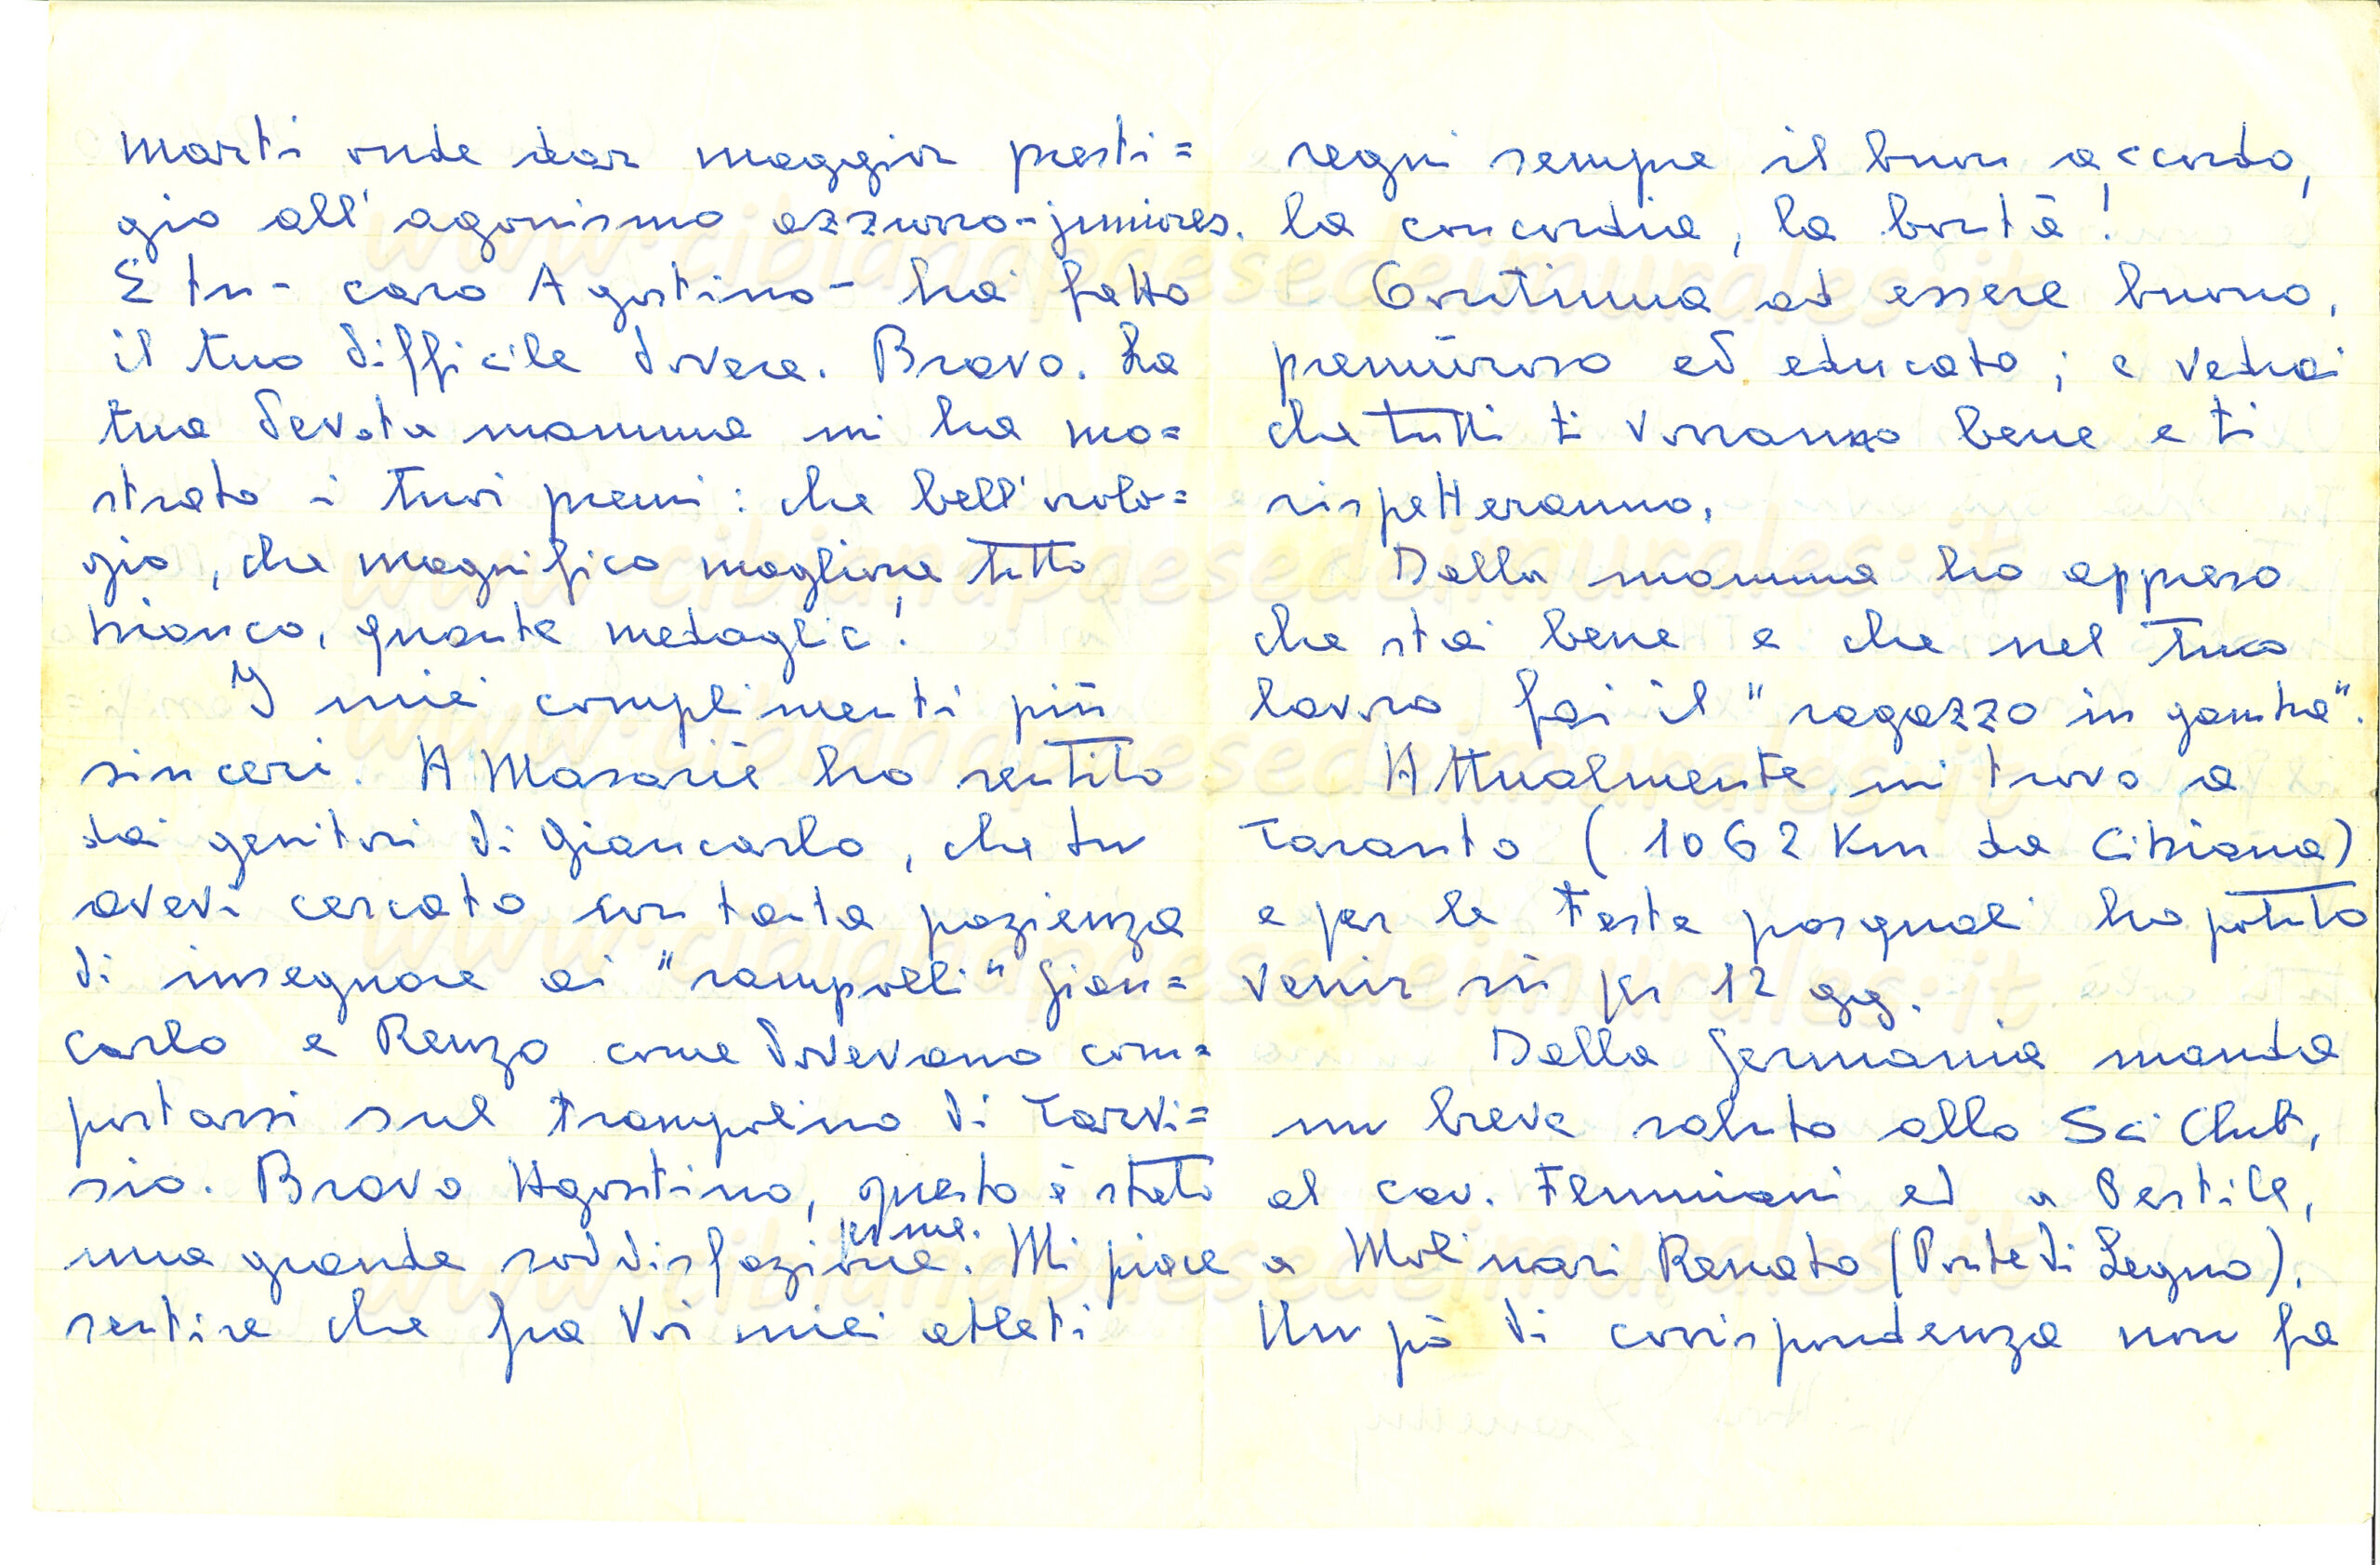 marti onde dar maggior presti=
gio all'agonismo azzurro-juniores.
E tu - caro Agostino - hai fatto
il tuo difficile dovere. Bravo. La
tua devota mamma mi ha mo=
strato i tuoi premi: che bell'orolo=
gio, che magnifico maglione tutto
bianco, quante medaglie!
I miei complimenti più
sinceri. A Masariè ho sentito
dai genitori di Giancarlo, che tu
avevi cercato con tanta pazienza
di insegnare ai "rampolli" Gian=
carlo e Renzo come dovevano com=
portarsi sul trampolino di Tarvi=
sio. Bravo Agostino, questo è stato
una grande soddisfazione per me. Mi piace
sentire che fra Voi miei atleti
regni sempre il buon accordo,
la concordia, la bontà!
Continua ad essere buono,
premuroso ed educato; e vedrai
che tutti ti vorranno bene e ti
rispetteranno.
Dalla mamma ho appreso
che stai bene e che nel tuo
lavoro fai il "ragazzo in gamba".
Attualmente mi trovo a
Taranto (1062 Km da Cibiana)
e per le Feste pasquali ho potuto
venir sù per 12 gg.
Dalla Germania manda
un breve saluto allo Sci Club,
al cav. Flumiani ed a Pertile,
a Molinari Renato (Ponte di Legno).
Un pò di corrispondenza non fa
www.cibianapaesedeimurales.it
www.cibianapaesedeimurales.it
www.cibianapaesedeimurales.it
www.cibianapaesedeimurales.it
www.cibianapaesedeimurales.it